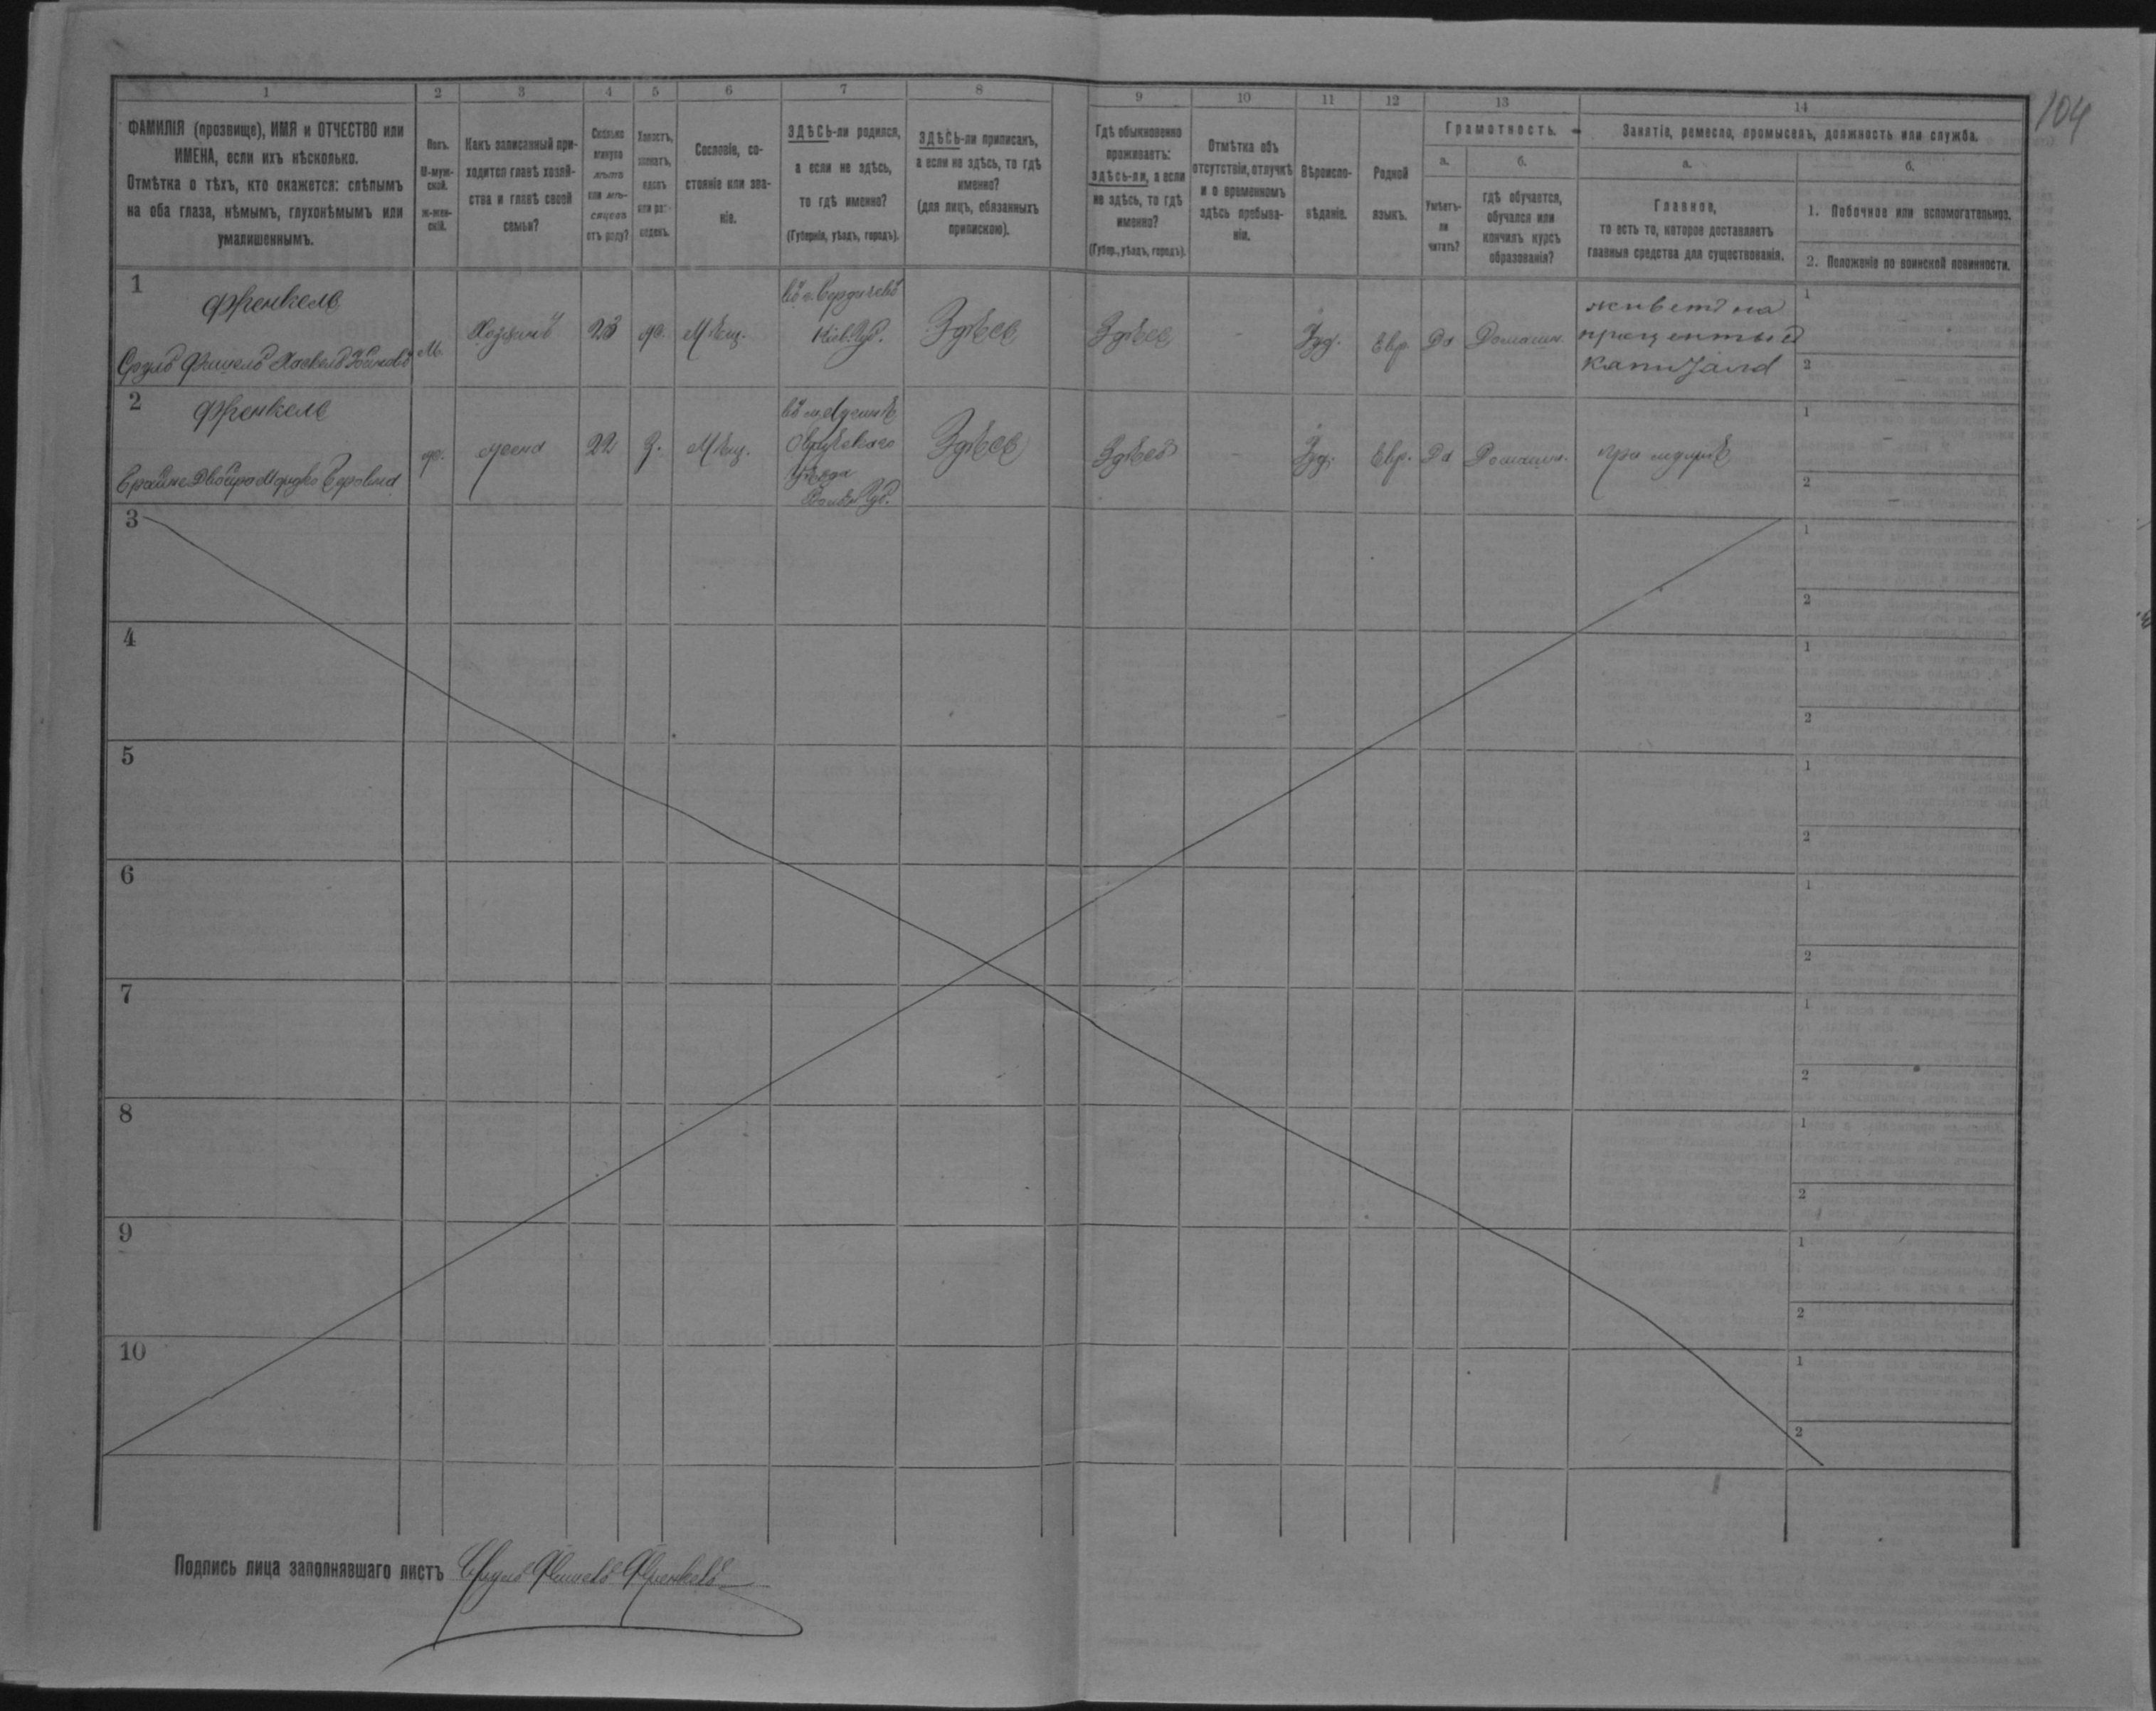 104
1
2
3
4
5
6
7
8
9
10
11
12
13
14
ФАМИЛІЯ (прозвище), ИМЯ и ОТЧЕСТВО или
ИМЕНА, если ихъ нѣсколько.
Отмѣтка о тѣхъ, кто окажется: слѣпымъ
на оба глаза, нѣмымъ, глухонѣмымъ или
умалишеннымъ.
Полъ.
М-муж-
ской.
Ж-жен-
скій.
Какъ записанный при-
ходится главѣ хозяй-
ства и главѣ своей
семьи?
Сколько
минуло
лѣтъ
или мѣ-
сяцевъ
отъ роду?
Холостъ,
женатъ,
вдовъ
или раз-
веденъ.
Сословіе, со-
стояніе или зва-
ніе.
ЗДѢСЬ-ли родился,
а если не здѣсь,
то гдѣ именно?
(Губернія, уѣздъ, городъ).
ЗДѢСЬ-ли приписанъ,
а если не здѣсь, то гдѣ
именно?
(для лицъ, обязанныхъ
припискою).
Гдѣ обыкновенно
проживаетъ:
здѣсь-ли, а если
не здѣсь, то гдѣ
именно?
(Губер., уѣздъ, городъ).
Отмѣтка объ
отсутствіи, отлучкѣ
и о временномъ
здѣсь пребыва-
ніи.
Вѣроиспо-
вѣданіе.
Родной
языкъ.
Грамотность.
а.
Умѣетъ-
ли
читать?
б.
гдѣ обучается,
обучался или
кончилъ курсъ
образованія?
Занятіе, ремесло, промыселъ, должность или служба.
а.
Главное,
то есть то, которое доставляетъ
главныя средства для существованія.
б.
1. Побочное или вспомогательное.
2. Положеніе по воинской повинности.
1
Френкель
Срулъ Фишелъ
М.
Хозяинъ
23
ж.
Мѣщ.
въ г. Бердичевѣ
Кіев. Губ.
Здѣсь
Здѣсь
-
Іуд.
Евр.
Да
Домашн.
живетъ на
проценты съ
капитала
1
-
2
-
2
Френкель
Двойра
ж.
жена
22
з.
Мѣщ.
въ м.
Овручскаго
Уѣзда
Волын. Губ.
Здѣсь
Здѣсь
-
Іуд.
Евр.
Да
Домашн.
при мужѣ
1
-
2
-
3
1
2
4
1
2
5
1
2
6
1
2
7
1
2
8
1
2
9
1
2
10
1
2
Подпись лица заполнявшаго листъ Срулъ Фишелъ Френкель